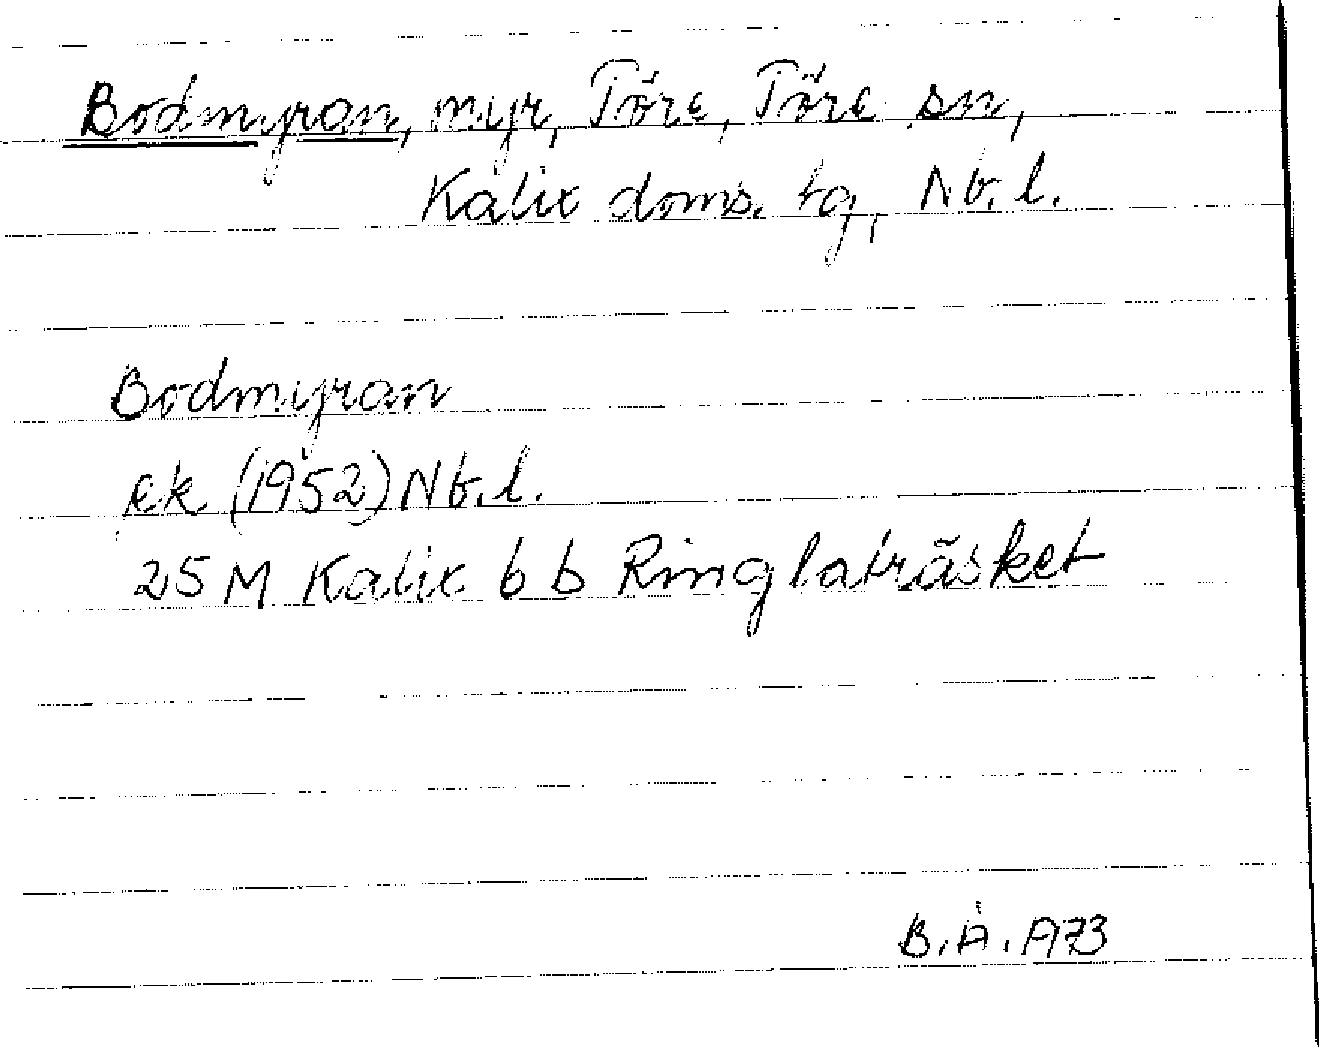 Bodmyran, myr, Töre, Töre sn,
Kalix doms. tg, Nb. l.
Bodmyran
ek (1952) Nb. l.
25 M Kalix b b Ringlaträsket
B. Å. 1973